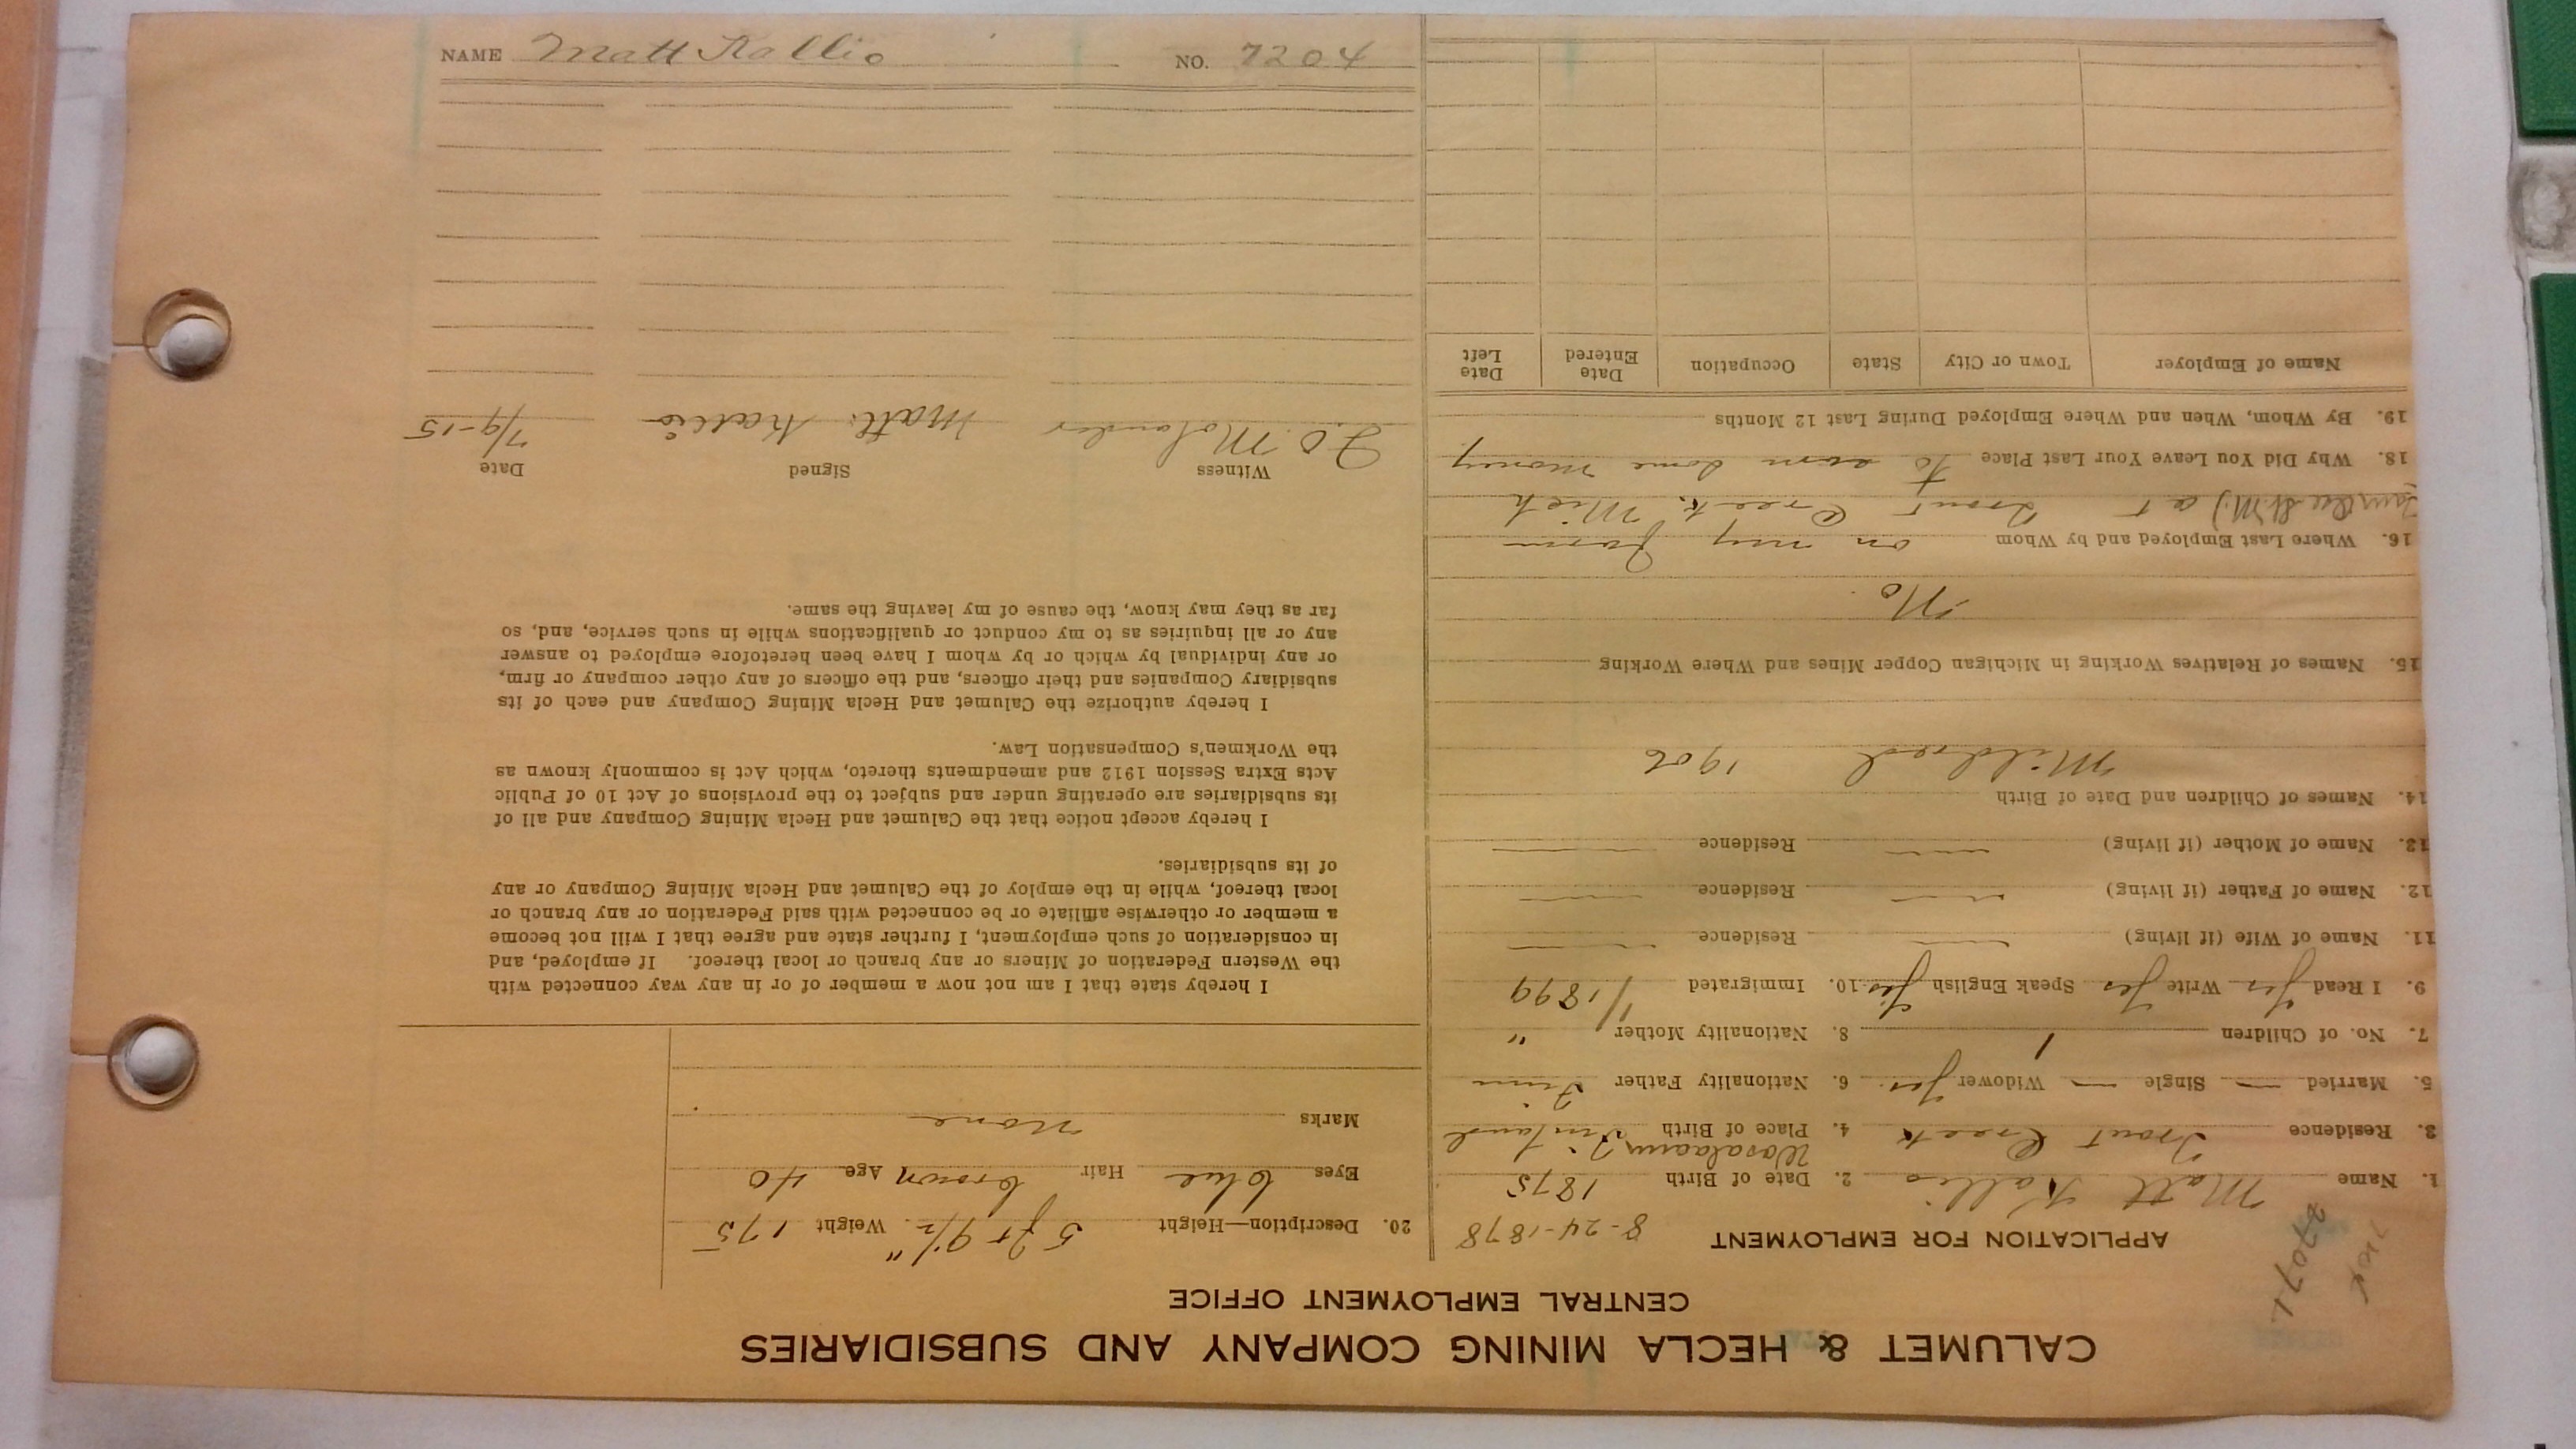 CALUMET & HECLA MINING COMPANY AND SUBSIDIARIES
CENTRAL EMPLOYMENT OFFICE
27071
APPLICATION FOR EMPLOYMENT 8-24-1878
1. Name Matt Kallio 2. Date of Birth 1875
3. Residence Trout Creek 4. Place of Birth Wasalaani Finland
5. Married — Single — Widower Yes 6. Nationality Father Finn
7. No. of Children 1 8. Nationality Mother "
9. I Read Yes Write Yes Speak English Yes 10. Immigrated 1/1899
11. Name of Wife (if living) — Residence —
12. Name of Father (if living) — Residence —
13. Name of Mother (if living) — Residence —
14. Names of Children and Date of Birth
Mildred 1906
15. Names of Relatives Working in Michigan Copper Mines and Where Working
No
16. Where Last Employed and by Whom on my farm
at Trout Creek, Mich
18. Why Did You Leave Your Last Place to earn some money
19. By Whom, When and Where Employed During Last 12 Months
Name of Employer Town or City State Occupation Date Entered Date Left
20. Description—Height 5 ft 9½" Weight 175
Eyes blue Hair brown Age 40
Marks None
I hereby state that I am not now a member of or in any way connected with
the Western Federation of Miners or any branch or local thereof. If employed, and
in consideration of such employment, I further state and agree that I will not become
a member or otherwise affiliate or be connected with said Federation or any branch or
local thereof, while in the employ of the Calumet and Hecla Mining Company or any
of its subsidiaries.
I hereby accept notice that the Calumet and Hecla Mining Company and all of
its subsidiaries are operating under and subject to the provisions of Act 10 of Public
Acts Extra Session 1912 and amendments thereto, which Act is commonly known as
the Workmen's Compensation Law.
I hereby authorize the Calumet and Hecla Mining Company and each of its
subsidiary Companies and their officers, and the officers of any other company or firm,
or any individual by which or by whom I have been heretofore employed to answer
any or all inquiries as to my conduct or qualifications while in such service, and, so
far as they may know, the cause of my leaving the same.
Witness Signed Date
J.O. Molander Matt. Kallio 7/9-15
NAME Matt Kallio NO. 7204